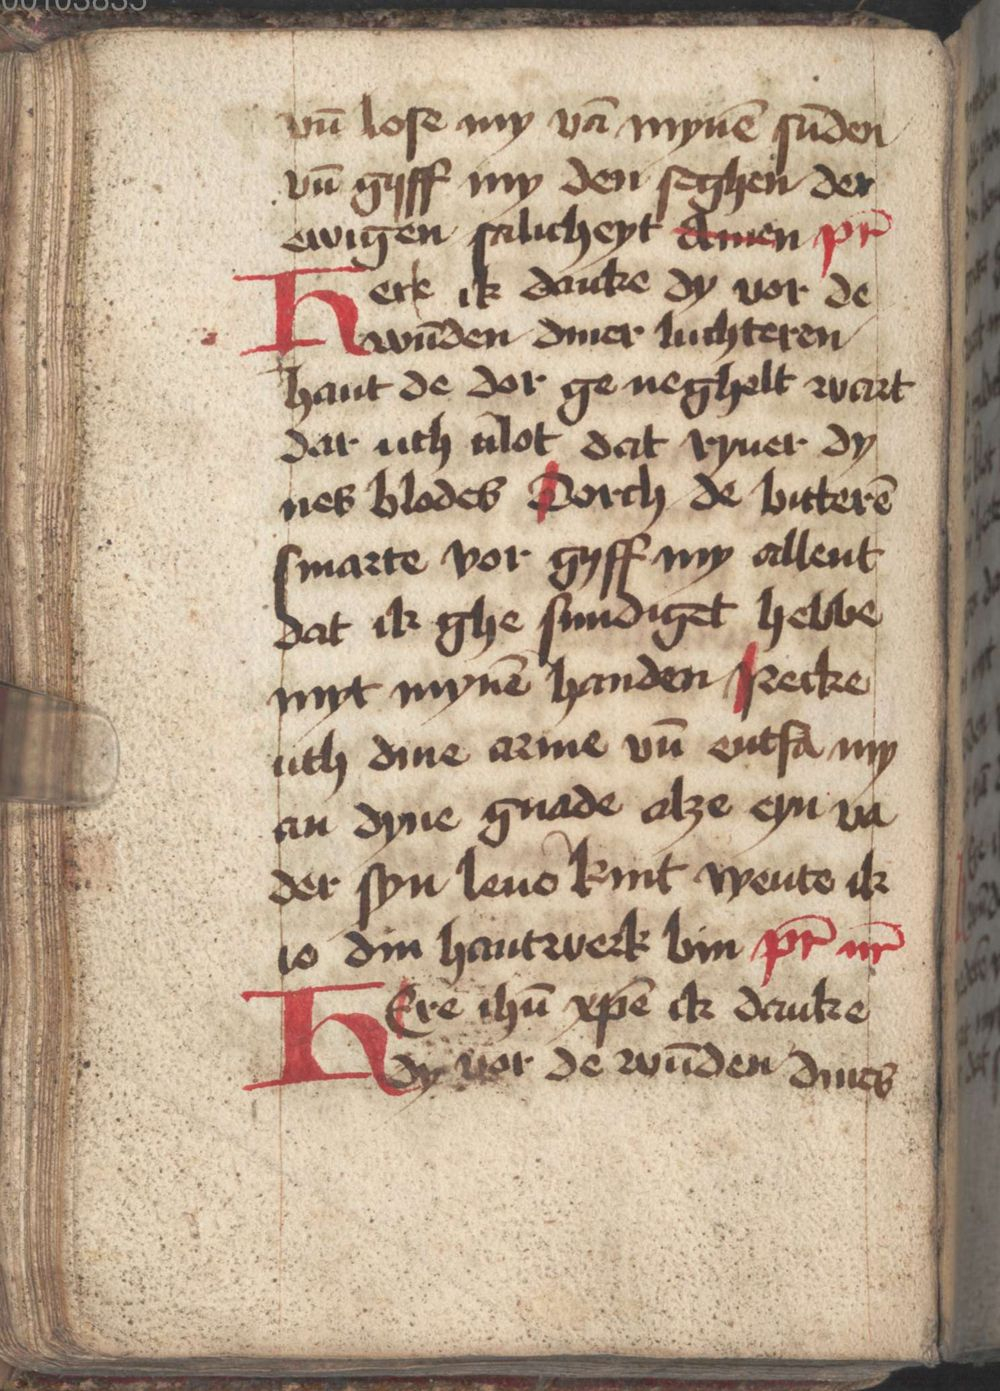 00103835
vn̄ lose my vā mynē sūden
vn̄ gyff my den seghen der
ewigen salicheyt Amen pr̄
Here ik dancke dy vor de
wūden diner luchteren
hant de dor ge neghelt wart
dar uth vlot dat ryuer dy
nes blodes Dorch de bitterē
smarte vor gyff my allent
dat ik ghe sundiget hebbe
myt mynē handen Recke
uth dine arme vn̄ entfa my
an dyne gnade alze eyn va
der syn leue kint wente ik
io din hantwerk bin pr̄ nr̄
HEre ihū xpē ik danke
dy vor de wūden dines